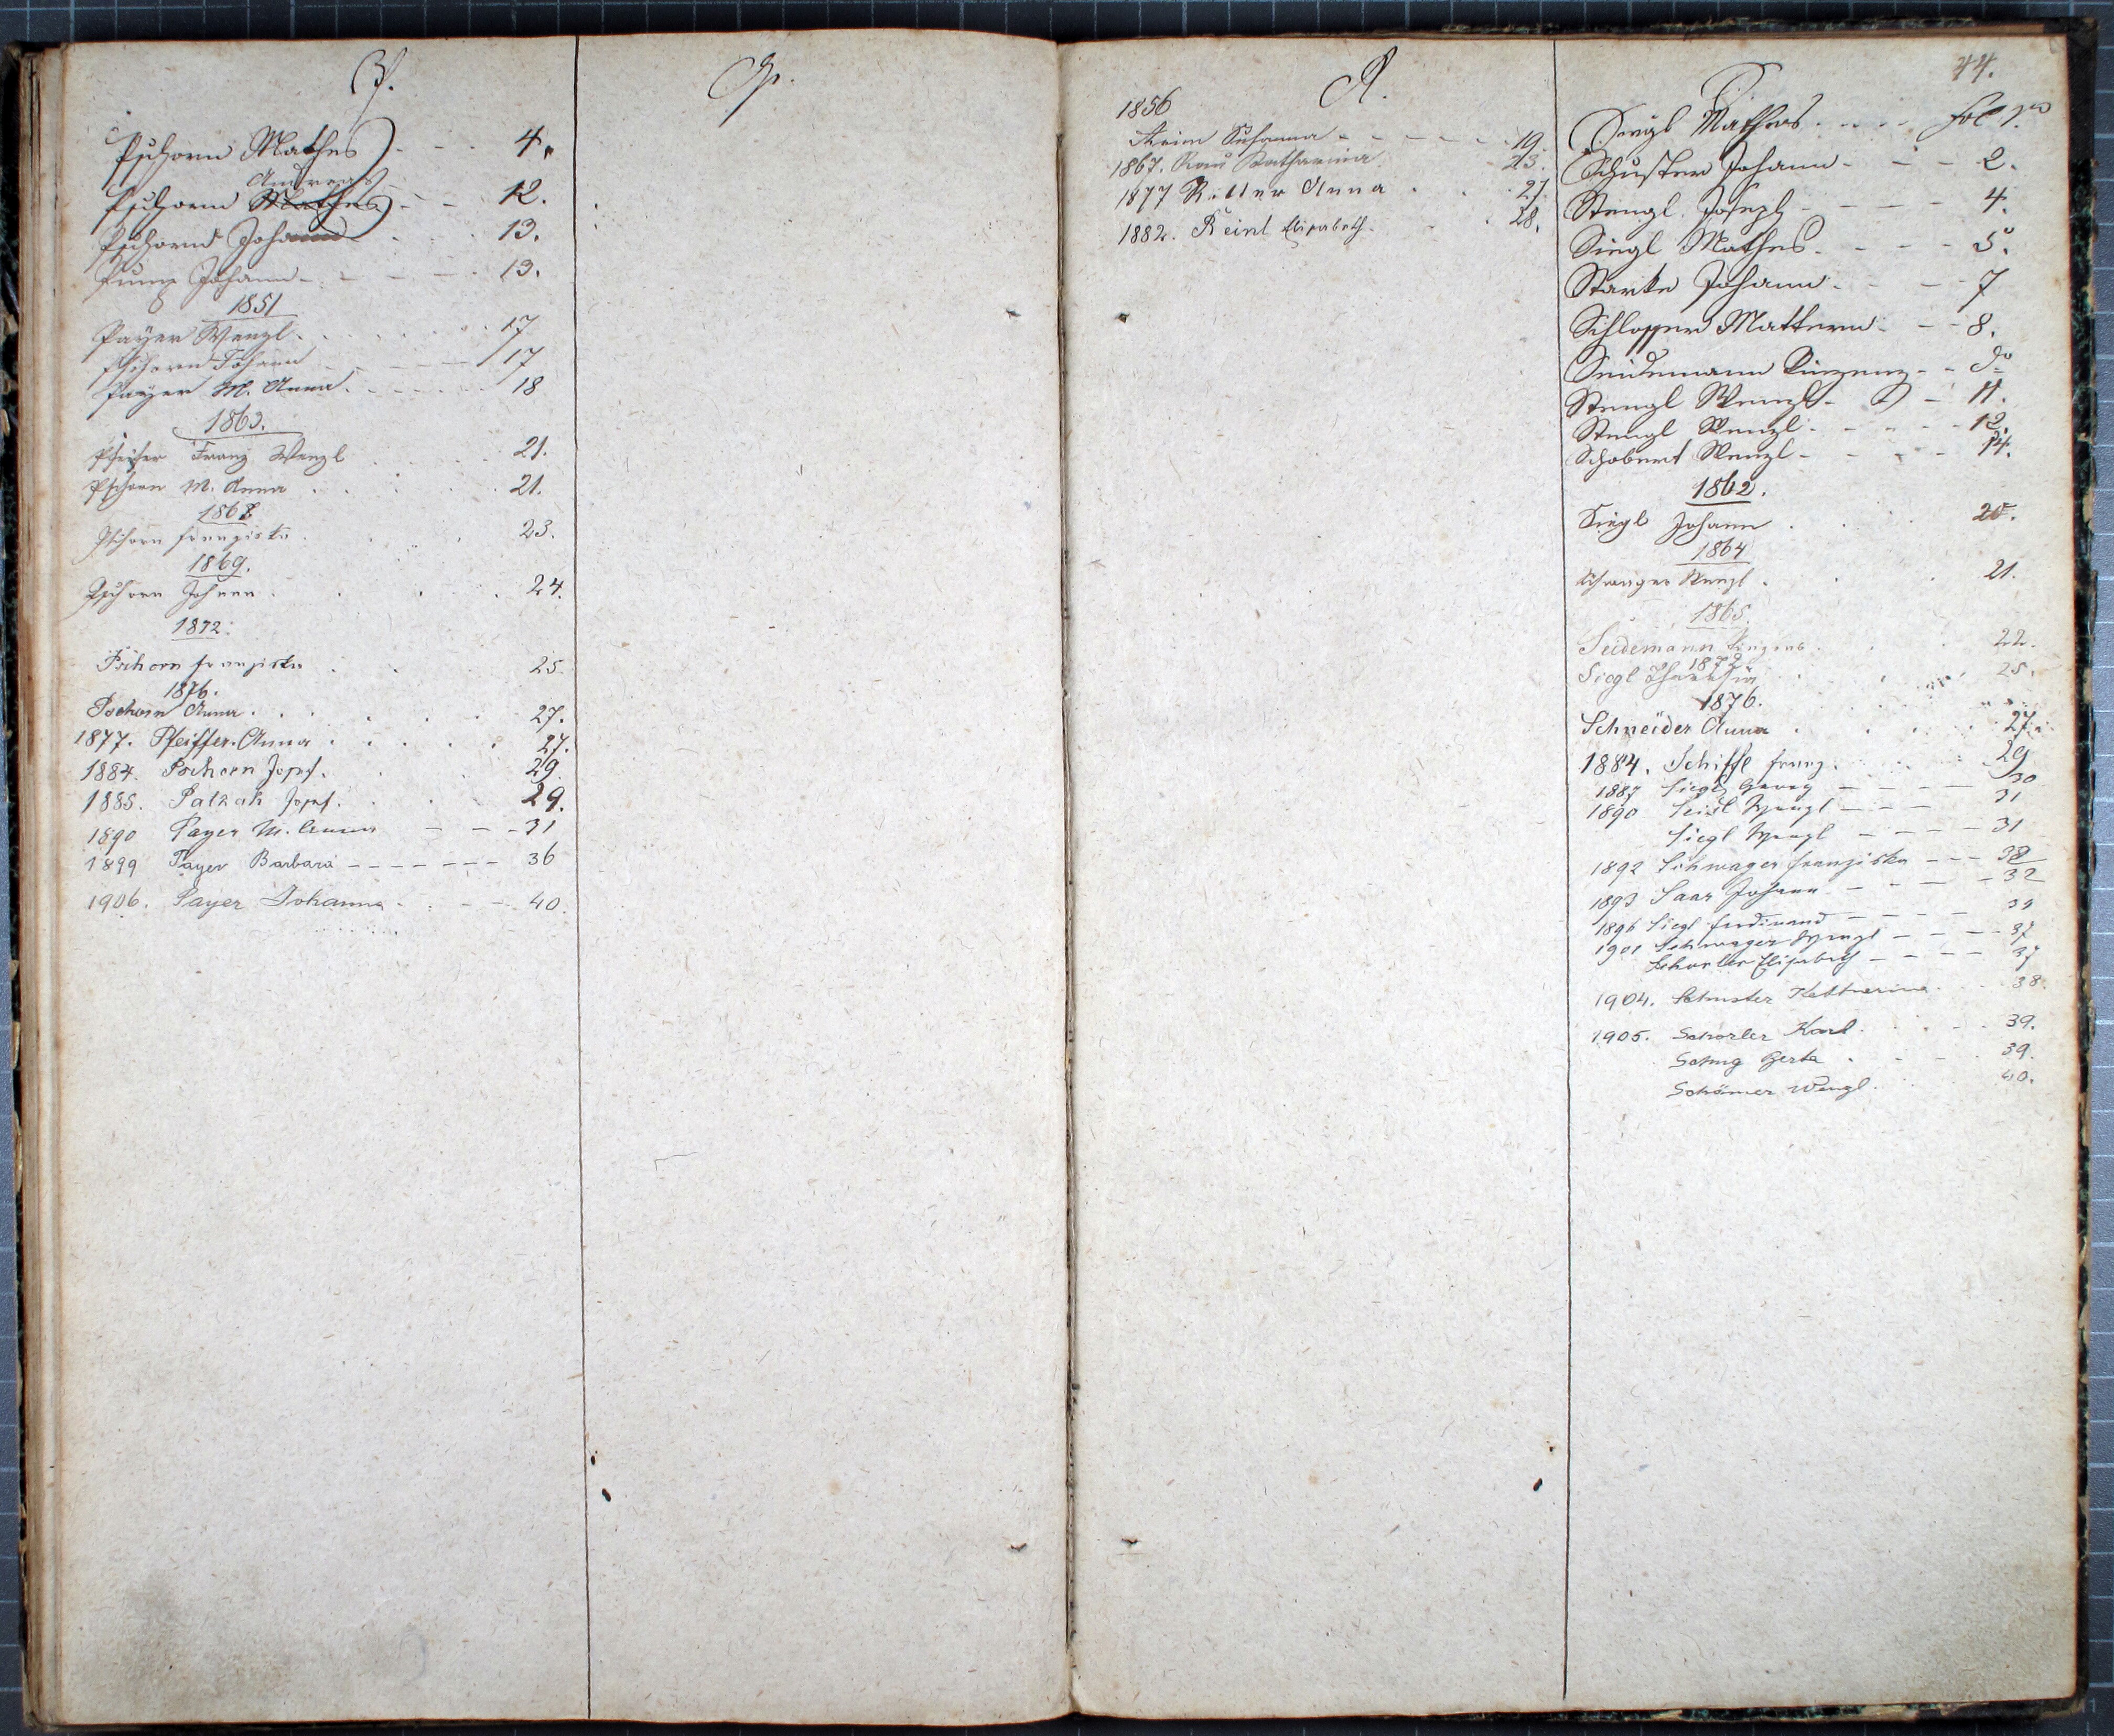 P.
Pschorn Mathes - - - 4.
Andreas
Pschorn Mathes - - 12.
Pschorn Johann - - 13.
Johann - - - - 13.
1851
Payer Wenzl . . . . . 17
Pschorn Johann - - - 17
Payer M. Anna . - - - - 18
1863.
Franz Wenzl . . . 21.
Pschorn M. Anna . . . . 21.
1868
Pschorn Franziska . . . 23.
1869.
Pschorn Johann . . . . 24.
1872.
Pschorn Franziska . . . 25.
1876.
Pschorn Anna . . . . . 27.
1877. Pfeiffer Anna . . . . . 27.
1884. Pschorn Josef . . . 29.
1885. Patzak Josef . . . 29.
1890 Payer M. Anna - - - 31
1899 Payer Barbara - - - - - - - 36
1906. Payer Johanna - . - - 40.
Q.
R.
1856
Susanna - - - - - - 19.
1867. Rau Katharina . 23.
1877 Ritter Anna . . . 27.
1882. Reinl Elisabeth . . . 28.
44.
S.
Siegl Mathes . . . . Fol 1.
Schuster Johann - - - 2.
Stengl Joseph - - - - 4.
Siegl Mathes . - - - 5.
Starke Johann . - - - 7
Schlosser Mattern . - - 8.
Seidemann Vinzenz - - do
Stengl Wenzl - - 11.
Stengl Wenzl . - - - - 12.
Schobert Wenzl - - - - 14.
1862.
Siegl Johann . . . . 20.
1864
Schwager Wenzl . . . 21.
1865.
Seidemann Vinzenz . . 22.
1872
Siegl Theresia . . . . 25.
1876.
Schneider Anna . . . . 27.
1884. Schiffl Franz . . . . 29
1887 Siegl Georg - - - - 30
1890 Seidl Wenzl - - - 31
Siegl Wenzl - - - - 31
1892 Schwager Franziska - - - 32
1893 Saar Johann - - - - 32
1896 Siegl Ferdinand - - - -
1901 Schwager Wenzl - - - - 37
Schorler Elisabeth - - - - 37
1904. Schuster Katharina . . . 38.
1905. Schorler Karl . . . . 39.
Gerta . . . . 39.
Wenzl . . . 40.